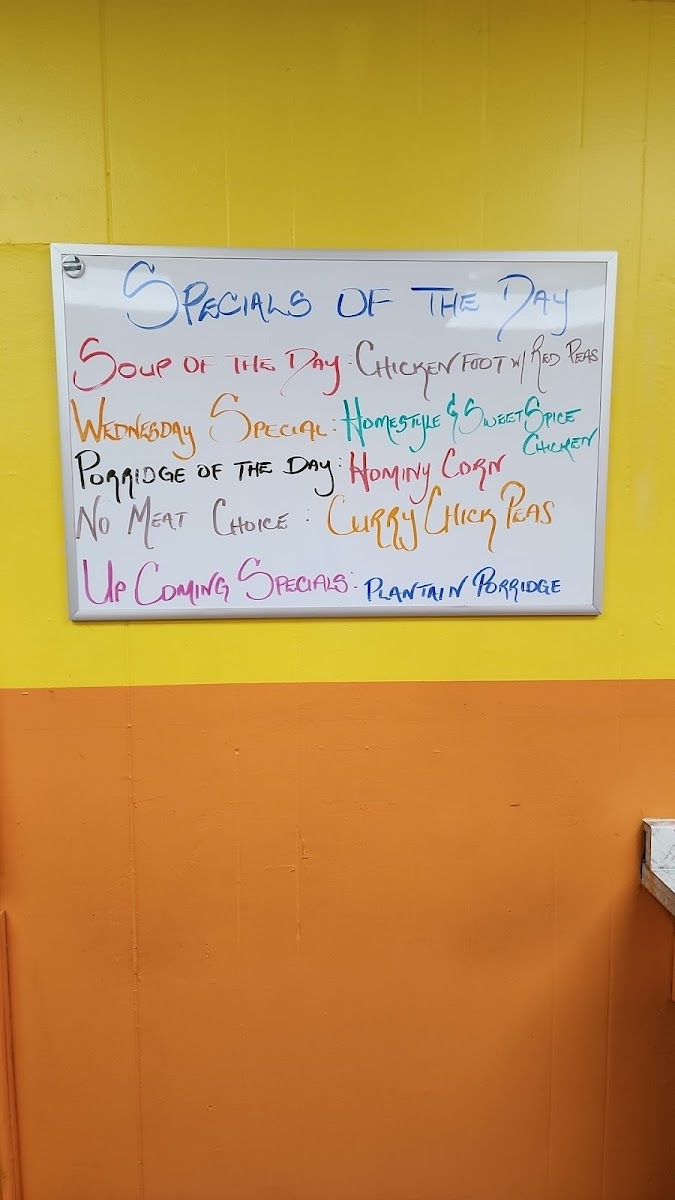 Specials of the Day
Soup of the Day: Chicken Foot w/ Red Peas
Wednesday Special: Homestyle & Sweet Spice
Chicken
Porridge of the Day: Hominy Corn
No Meat Choice: Curry Chick Peas
Up Coming Specials: Plantain Porridge